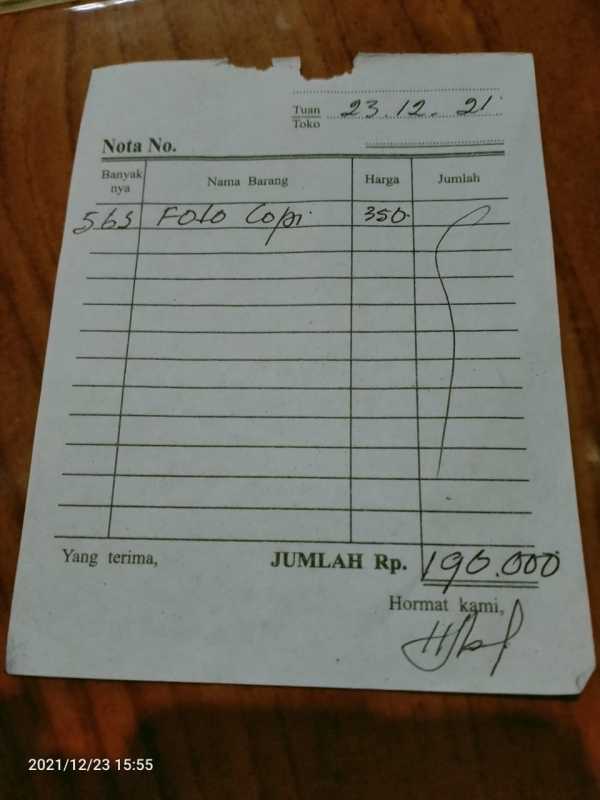 Tuan 23.12.21
Toko
Nota No.
Banyak nya Nama Barang Harga Jumlah
565 Foto Copi 350
Yang terima, JUMLAH Rp. 190.000
Hormat kami,
2021/12/23 15:55